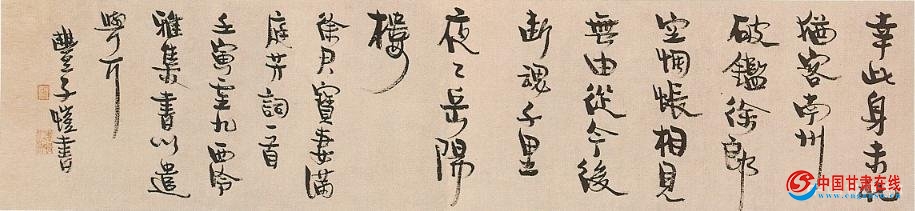 幸此身未北
猶客南州
破鑑徐郎
空惆悵相見
無由從今後
断魂千里
夜々岳陽
樓
徐君寶妻滿
庭芳詞一首
壬寅重九西泠
雅集書以遣
豐子愷書
中国甘肃在线